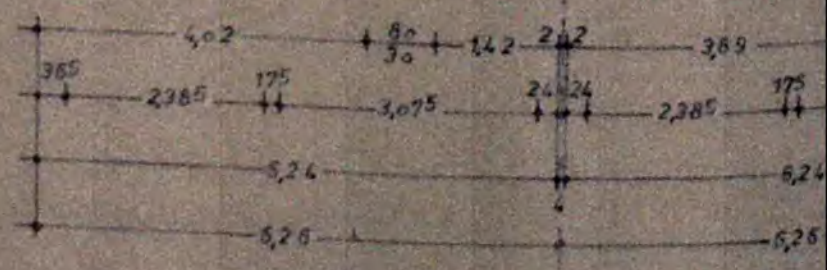 4,02 80 1,42 2 2 3,69
30
36⁵ 2,38⁵ 17⁵ 3,07⁵ 24 24 2,38⁵ 17⁵
6,24 6,24
4
6,26 6,26